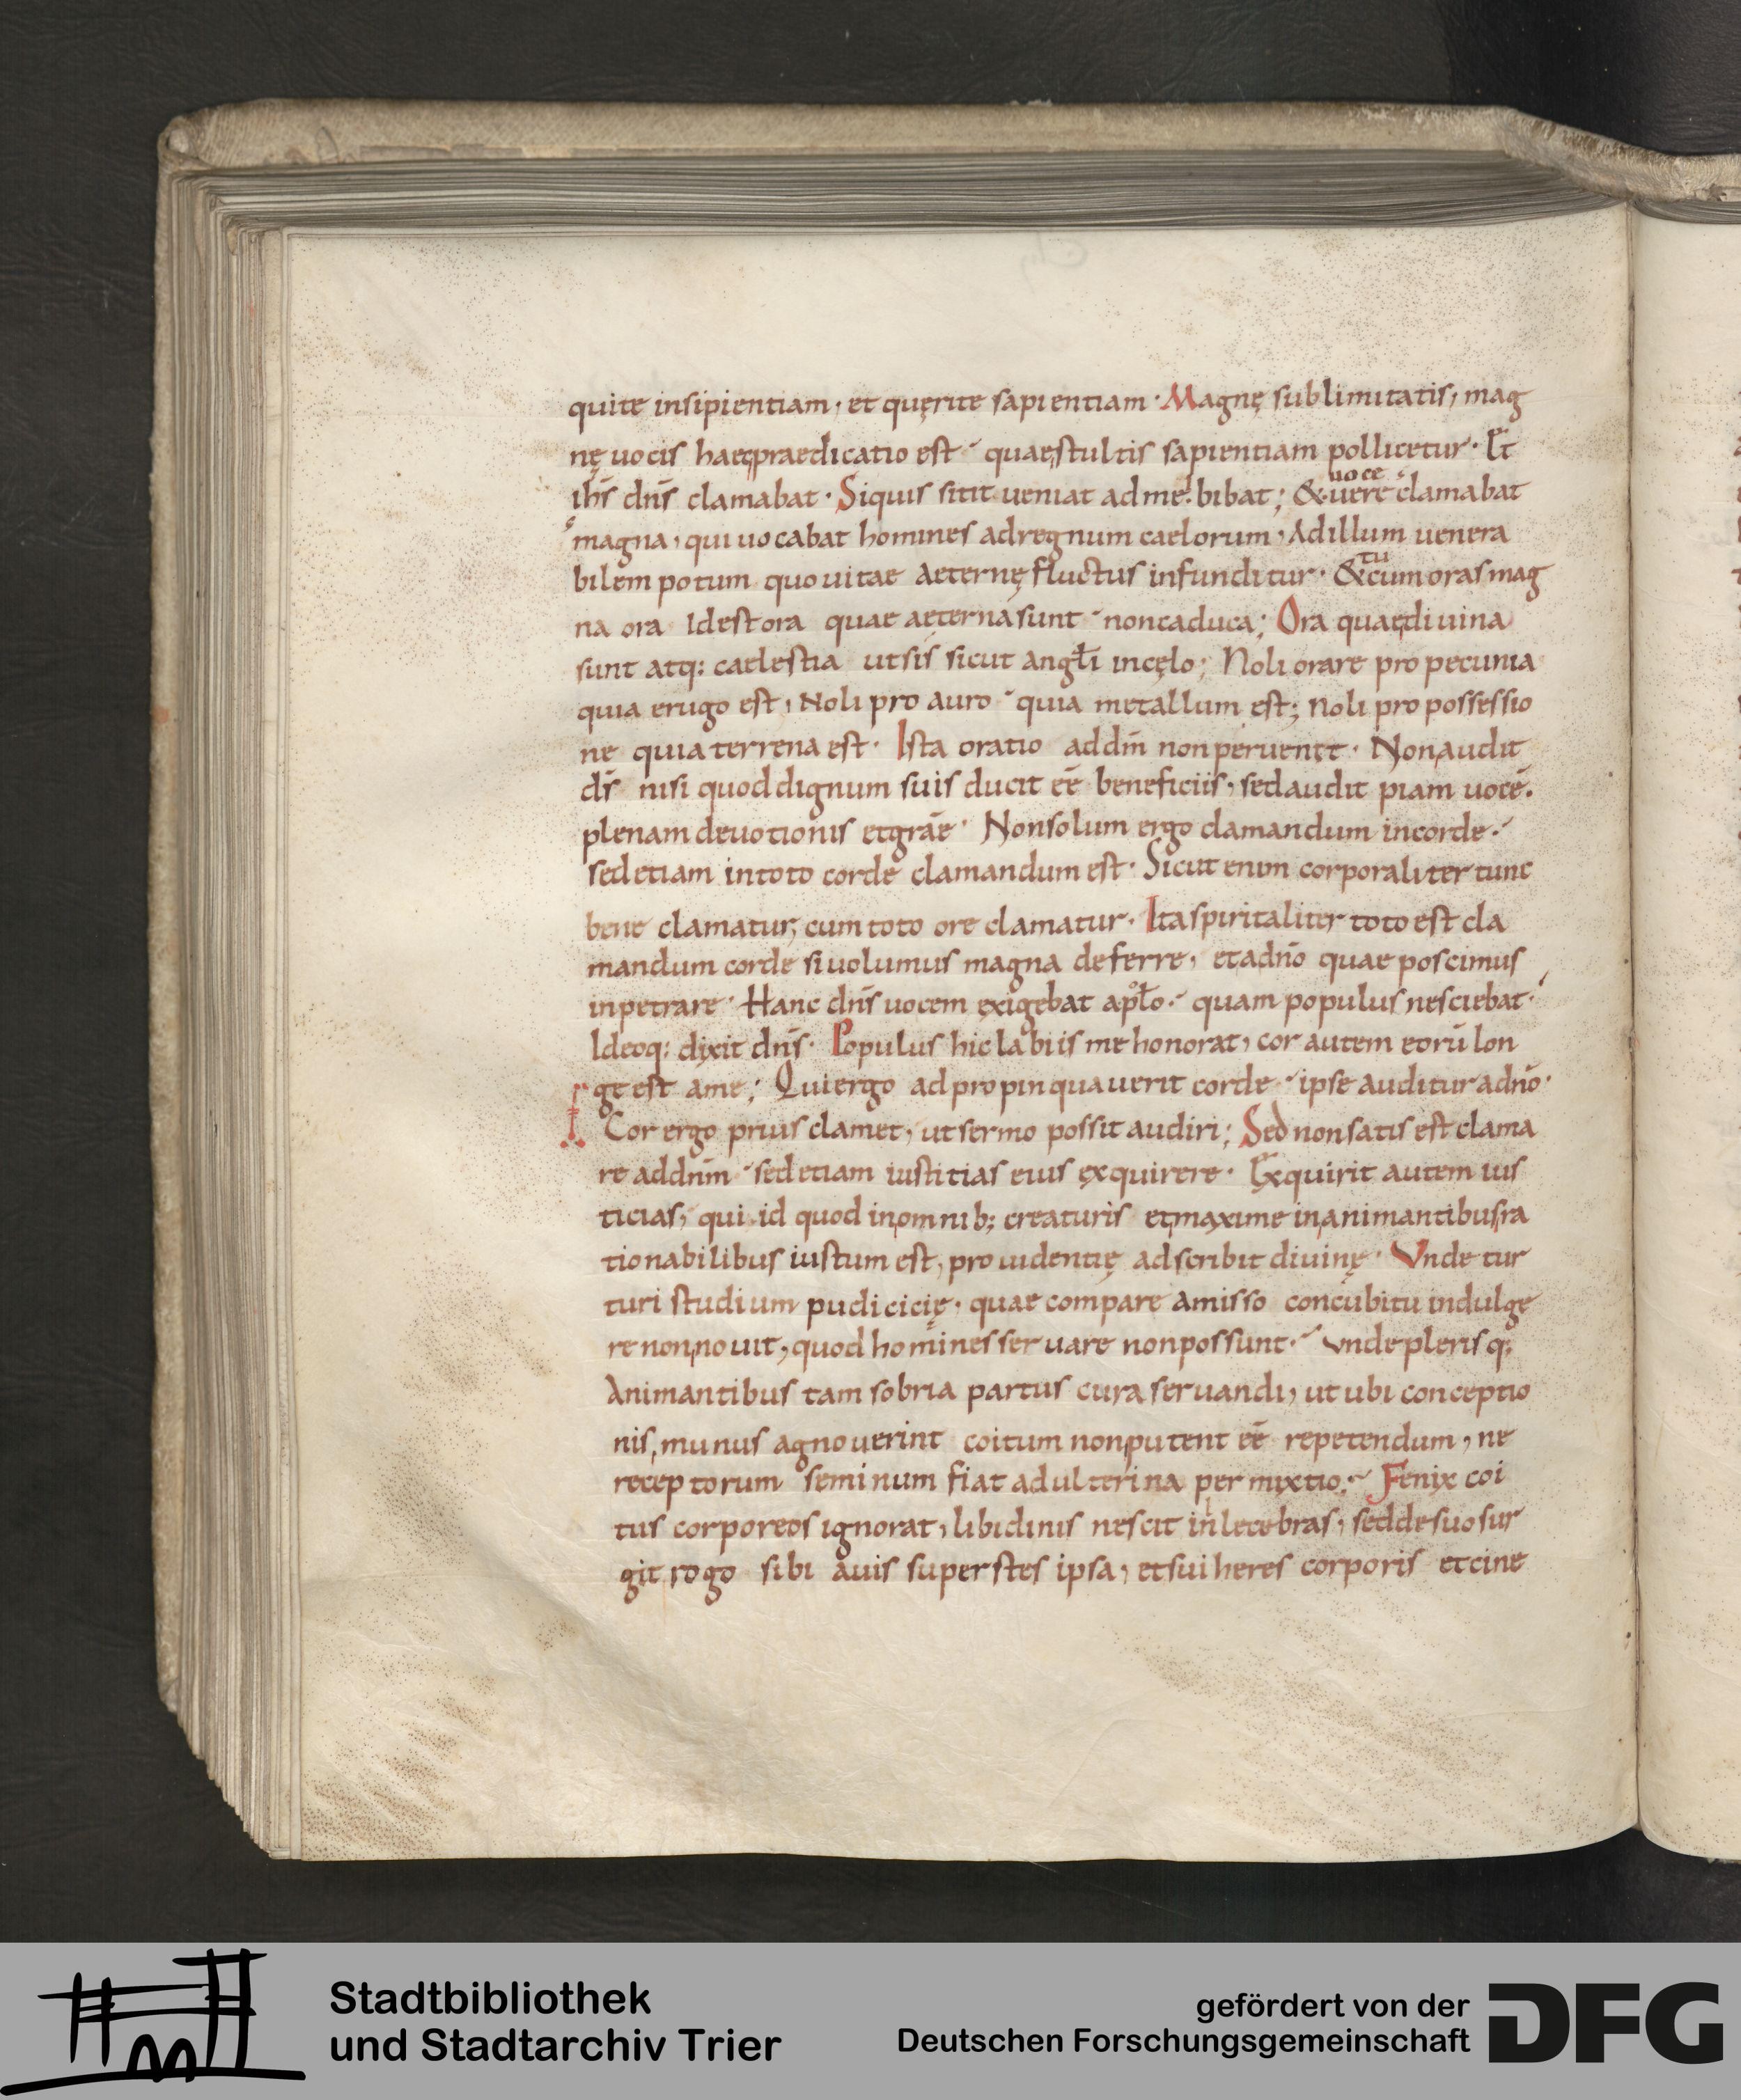 quite insipientiam, et quęrite sapientiam. Magnę sublimitatis, mag
nę uocis haec praedicatio est quae stultis sapientiam pollicetur. Et
ihs̄ dns̄ clamabat. Siquis sitit ueniat ad me. bibat; & uere clamabat
uoce
magna, qui uocabat homines ad regnum caelorum, Adillum uenera
bilem potum quo uitae aeternę fluctus infunditur. & cum oras mag
tu
na ora Idest ora quae aeterna sunt non caduca; Ora quae diuina
sunt atq: caelestia ut sis sicut angłi in cęlo; Noli orare pro pecunia
quia erugo est, Noli pro auro quia metallum est; noli pro possessio
ne quia terrena est. Ista oratio ad dm̄ non peruenit. Non audit
ds̄ nisi quod dignum suis ducit eē beneficiis, sed audit piam uocē.
plenam deuotionis et grāe. Non solum ergo clamandum in corde.
sed etiam in toto corde clamandum est. Sicut enim corporaliter tunc
bene clamatur, cum toto ore clamatur. Ita spiritaliter toto est cla
mandum corde si uolumus magna deferre, et a dnō quae poscimus
inpetrare. Hanc dns̄ uocem exigebat apło. quam populus nesciebat.
Ideoq: dixit dns̄. Populus hic labiis me honorat, cor autem eorū lon
ge est a me; Qui ergo adpropinquauerit corde ipse auditur a dnō.
Cor ergo prius clamet, ut sermo possit audiri; Sed non satis est clama
re ad dnm̄ sed etiam iustitias eius exquirere. Exquirit autem ius
ticias, qui id quod in omnib; creaturis et maxime in animantibus ra
tionabilibus iustum est, prouidentię adscribit diuinę. Vnde tur
turi studium pudicicię. quae compare amisso concubitu indulge
re non nouit, quod homines seruare non possunt. Vnde plerisq;
Animantibus tam sobria partus cura seruandi, ut ubi conceptio
nis munus agnouerint coitum non putent eē repetendum, ne
receptorum seminum fiat adulterina permixtio. Fenix coi
tus corporeos ignorat, libidinis nescit inlecebras, sed de suo sur
git rogo sibi auis superstes ipsa, et sui heres corporis et cine
Stadtbibliothek
und Stadtarchiv Trier
gefördert von der
Deutschen Forschungsgemeinschaft
DFG